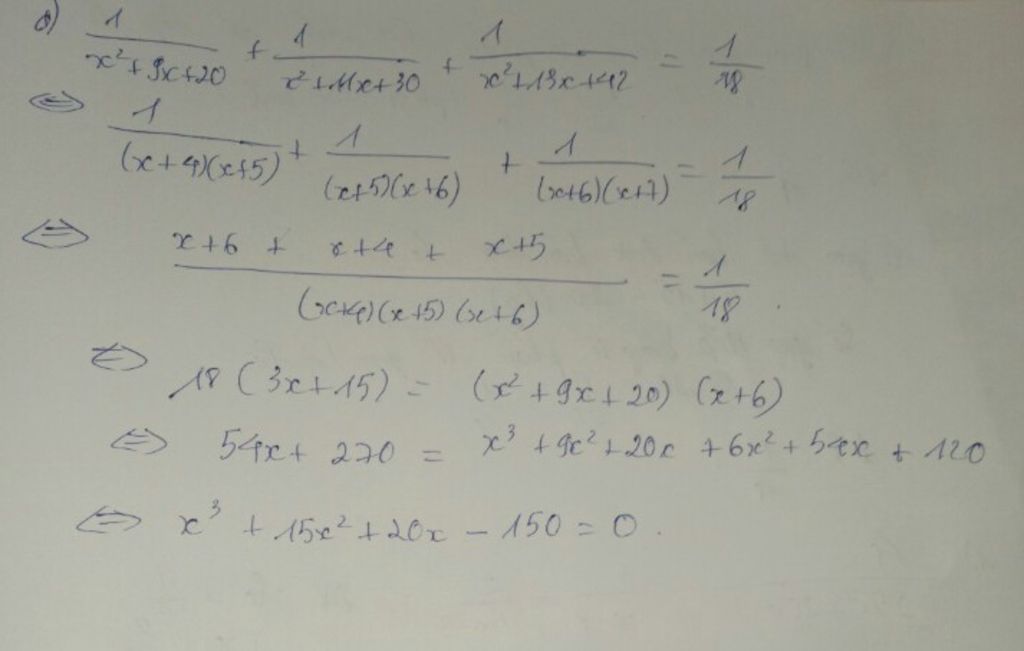 a) 1/(x²+9x+20) + 1/(x²+11x+30) + 1/(x²+13x+42) = 1/18
⇔ 1/((x+4)(x+5)) + 1/((x+5)(x+6)) + 1/((x+6)(x+7)) = 1/18
⇔ (x+6 + x+4 + x+5)/((x+4)(x+5)(x+6)) = 1/18.
⇔ 18(3x+15) = (x²+9x+20)(x+6)
⇔ 54x + 270 = x³ + 9x² + 20x + 6x² + 54x + 120
⇔ x³ + 15x² + 20x – 150 = 0.